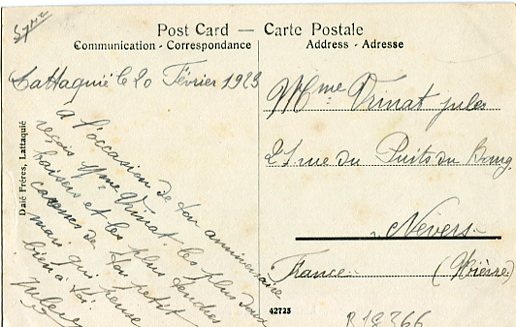 Syrie
Post Card — Carte Postale
Communication - Correspondance
Address - Adresse
Lattaquié le 20 Février 1923
A l'occasion de ton anniversaire
reçois Mme Vrinat les plus doux
baisers et les plus tendres
caresses de ton petit
mari qui pense
bien à toi
Jules
Mme Vrinat jules
21 rue du Puits du Bourg
Nevers
France (Nièvre)
Daié Fréres, Lattaquié
42725
B18366